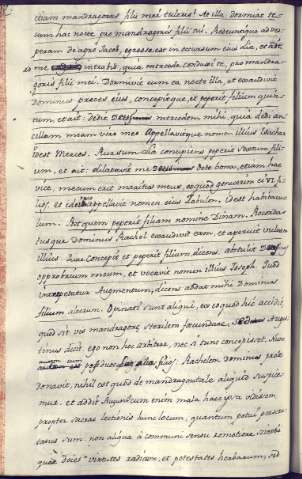 etiam mandragoras filij mei tuleris? At illa, dormiat te-
cum hac nocte pro mandragoris filij tui. Redeuntique ad ves-
peram de agro Jacob, egressa est in occursum eius Lia, et ait,
ad me intrabis, quia mercede conduxi te, pro mandra-
goris filij mei. Dormivit cum ea nocte illa, et exaudivit
dominus preces eius, concepitque, et peperit filium quin-
tum, et ait: dedit mercedem mihi, quia dedi an-
cillam meam viro meo. Appellavitque nomen illius Isachar
idest Merces. Rursum Lia concipiens peperit sextum fili-
um, et ait: me dote bona, etiam hac
vice, mecum erit maritus meus, eo quod genuerim ei VI. fi-
lios, et appellavit nomen eius Zabulon, idest habitacu-
lum. Post quem peperit filiam nomine Dinam. Recorda-
tusque Dominus Rachel exaudivit eam, et aperuit vulvam
illius. Quæ concepit et peperit filium dicens, abstulit
opprobrium meum, et vocavit nomen illius Joseph. Quod
interpretatur Augmentum, dicens addat mihi Dominus
filium alterum. Opinati sunt aliqui, ex eo quod hic accidit,
quod sit vis mandragoræ sterilem fœcundare. Augus-
tinus dicit ego non hoc arbitror, nec si tunc concepisset.
Rachelem dominus prole
donavit, nihil est quod de mandragora tale aliquid suspice-
mur. et addit Augustinum enim mala hæc ipse viderim
propter sacræ lectionis hunc locum, quantum potui
causas eius non aliqua à communi sensu remotiore scientia
quæ docet virtutes radicum, et potestates herbarum, sed